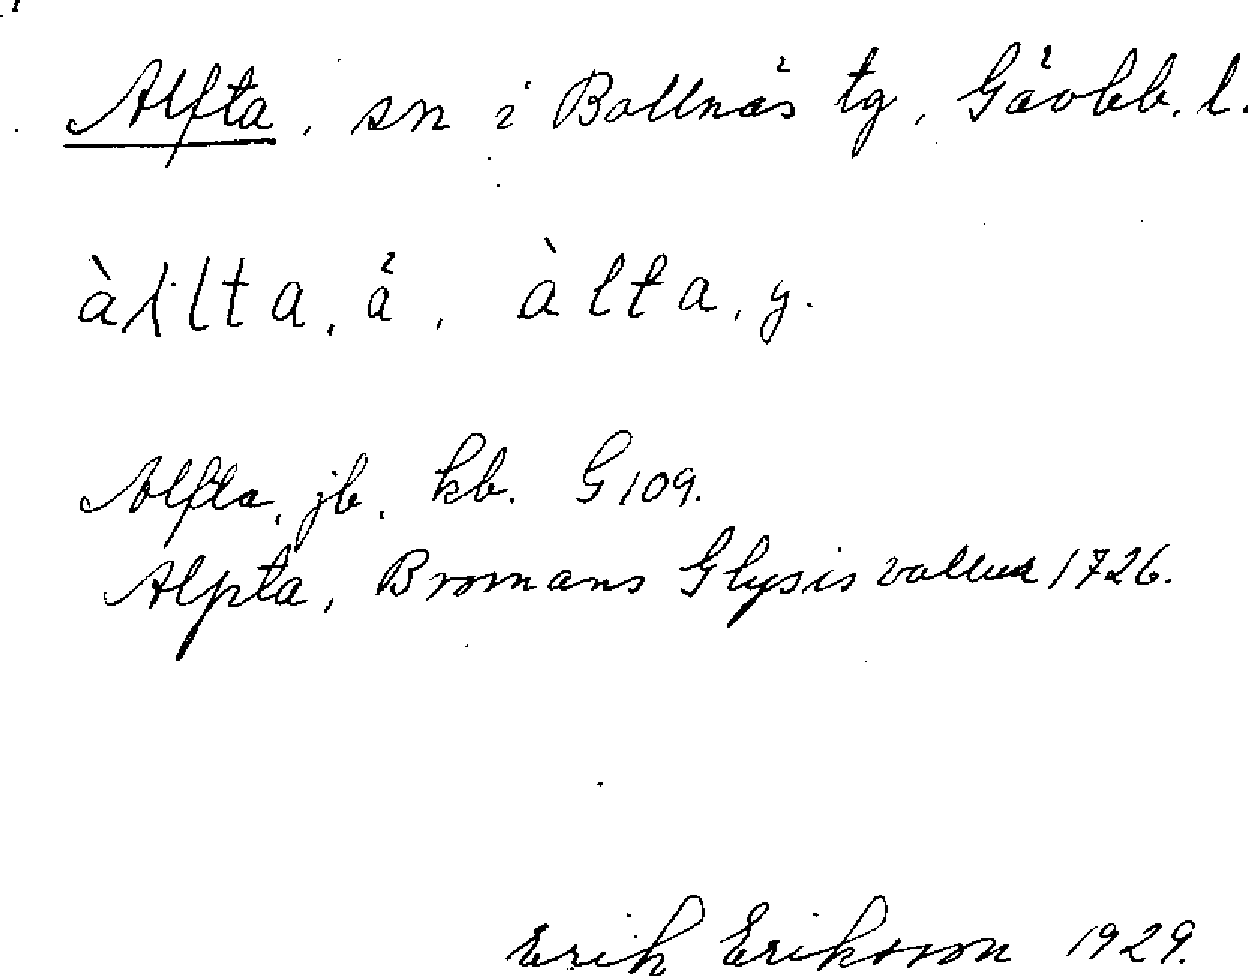 Alfta, sn i Bollnäs tg, Gävleb. l.
àltta, ä, àlta, y.
Alfta, jb, kb. G 109.
Alpta, Bromans Glysisvallur 1726.
Erik Eriksson 1929.